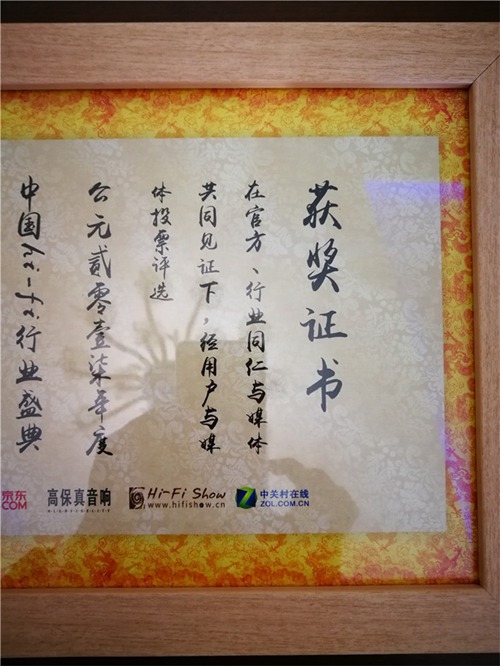 获奖证书
在官方、行业同仁与媒体
共同见证下，经用户与媒
体投票评选
公元贰零壹柒年度
中国hi-fi行业盛典
京东
COM
高保真音响
Hi-Fi Show
www.hifishow.cn
中关村在线
ZOL.COM.CN